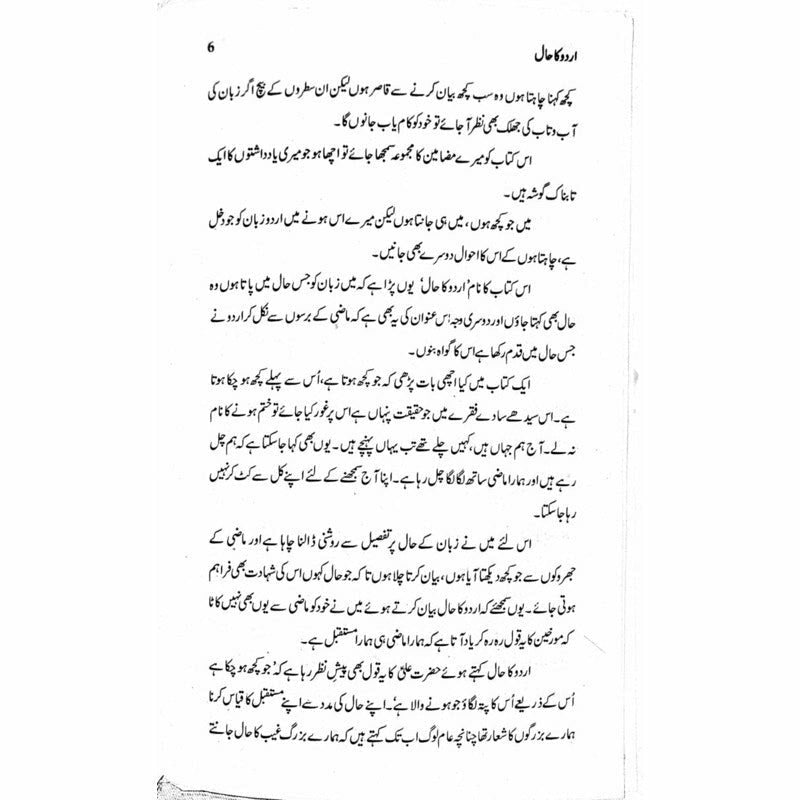 اردو کا حال 6
کچھ کہنا چاہتا ہوں وہ سب کچھ بیان کرنے سے قاصر ہوں لیکن ان سطروں کے بیچ اگر زبان کی
آب و تاب کی جھلک بھی نظر آ جائے تو خود کو کام یاب جانوں گا۔
اس کتاب کو میرے مضامین کا مجموعہ سمجھا جائے تو اچھا ہو جو میری یادداشتوں کا ایک
تابناک گوشہ ہیں۔
میں جو کچھ ہوں، میں ہی جانتا ہوں لیکن میرے اس ہونے میں اردو زبان کو جو دخل
ہے، چاہتا ہوں کے اس کا احوال دوسرے بھی جانیں۔
اس کتاب کا نام ’اردو کا حال‘ یوں پڑا ہے کہ میں زبان کو جس حال میں پاتا ہوں وہ
حال بھی کہتا جاؤں اور دوسری وجہ اس عنوان کی یہ بھی ہے کہ ماضی کے برسوں سے نکل کر اردو نے
جس حال میں قدم رکھا ہے اس کا گواہ بنوں۔
ایک کتاب میں کیا اچھی بات پڑھی کہ جو کچھ ہوتا ہے، اُس سے پہلے کچھ ہو چکا ہوتا
ہے۔ اس سیدھے سادے فقرے میں جو حقیقت پنہاں ہے اس پر غور کیا جائے تو ختم ہونے کا نام
نہ لے۔ آج ہم جہاں ہیں، کہیں چلے تھے تب یہاں پہنچے ہیں۔ یوں بھی کہا جا سکتا ہے کہ ہم چل
رہے ہیں اور ہمارا ماضی ساتھ لگا لگا چل رہا ہے۔ اپنا آج سمجھنے کے لئے اپنے کل سے کٹ کر نہیں
رہا جا سکتا۔
اس لئے میں نے زبان کے حال پر تفصیل سے روشنی ڈالنا چاہا ہے اور ماضی کے
جھروکوں سے جو کچھ دیکھتا آیا ہوں، بیان کرتا چلا ہوں تا کہ جو حال کہوں اس کی شہادت بھی فراہم
ہوتی جائے۔ یوں سمجھئے کہ اردو کا حال بیان کرتے ہوئے میں نے خود کو ماضی سے یوں بھی نہیں کاٹا
کہ مورخین کا یہ قول رہ رہ کر یاد آتا ہے کہ ہمارا ماضی ہی ہمارا مستقبل ہے۔
اردو کا حال کہتے ہوئے حضرت علیؓ کا یہ قول بھی پیش نظر رہا ہے کہ ’جو کچھ ہو چکا ہے
اُس کے ذریعے اُس کا پتہ لگاؤ جو ہونے والا ہے‘۔ اپنے حال کی مدد سے اپنے مستقبل کا قیاس کرنا
ہمارے بزرگوں کا شعار تھا چنانچہ عام لوگ اب تک کہتے ہیں کہ ہمارے بزرگ غیب کا حال جانتے